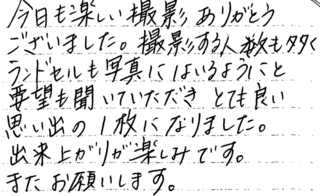 今日も楽しい撮影ありがとう
ございました。撮影する人数も多く
ランドセルも写真にはいるようにと
要望も聞いていただき とても良い
思い出の1枚になりました。
出来上がりが楽しみです。
またお願いします。